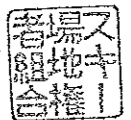 スキー
場地権
者組合